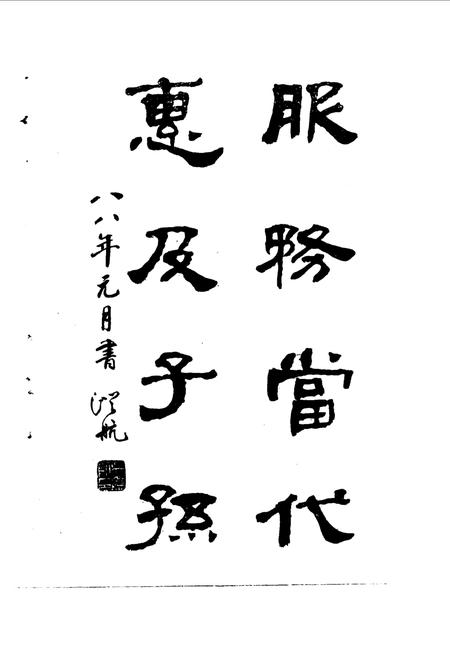 服務當代
惠及子孫
八八年元月書